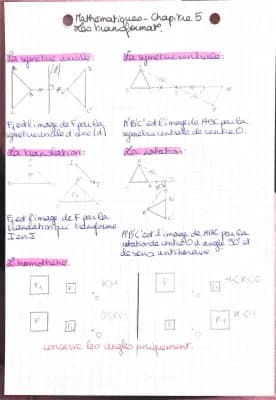 Mathématiques - Chapitre 5
Les transformat°.
La symétrie axiale:
La symétrie centrale:
(d)
F₁ est l'image de F par la
symétrie axiale d'axe (d)
A'B'C' est l'image de ABC par la
symétrie centrale de centre O.
La translation:
La rotation:
F₁ est l'image de F par la
translation qui transforme
I en J
A'B'C' est l'image de ABC par la
rotation de centre O d'angle 90° et
de sens antihoraire
L'homothétie
F₁
F
k>1
-1<k<0
F
0<k<1
k<-1
conserve les angles uniquement.